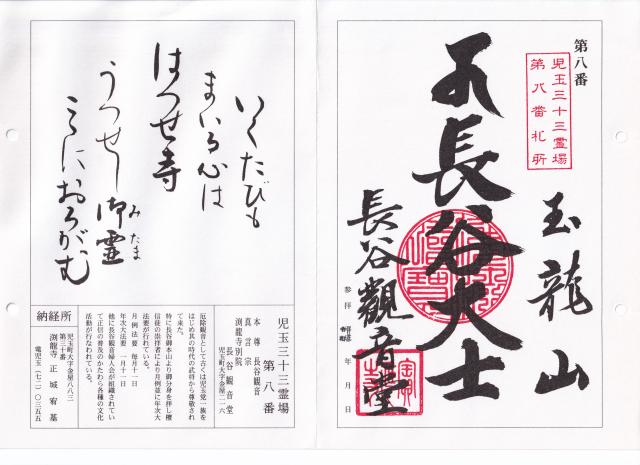 第八番
児玉三十三霊場
第八番札所
玉龍山
長谷大士
長谷觀音堂
参拝
年
月
日
いくたびも
まいる心は
はつせ寺
うつせし御霊
みたま
こゝにおろがむ
児玉三十三霊場
第八番
本尊 長谷観音
真言宗
渕龍寺別院
長谷観音堂
児玉町大字金屋二一六
厄除観音として古くは児玉党一族を
はじめ其の時代の武将から尊敬され
て来た。
特に長谷御本山より御分身を拝し檀
信徒の崇拝者により月例並に年次大
法要が行れている。
月例法要 毎月十一日
年次大法要 一月十一日
他に長谷観音婦人会が組織されてい
て正信の普及のかたわら各種の文化
活動が行なわれている。
納経所
児玉町大字金屋八八三
第三十番
渕龍寺 正城宥基
電児玉(七二)〇三五五